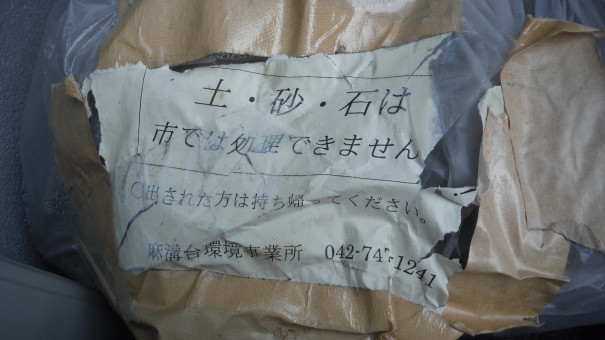 土・砂・石は
市では処理できません
〇出された方は持ち帰ってください。
麻溝台環境事業所 042-74 1241